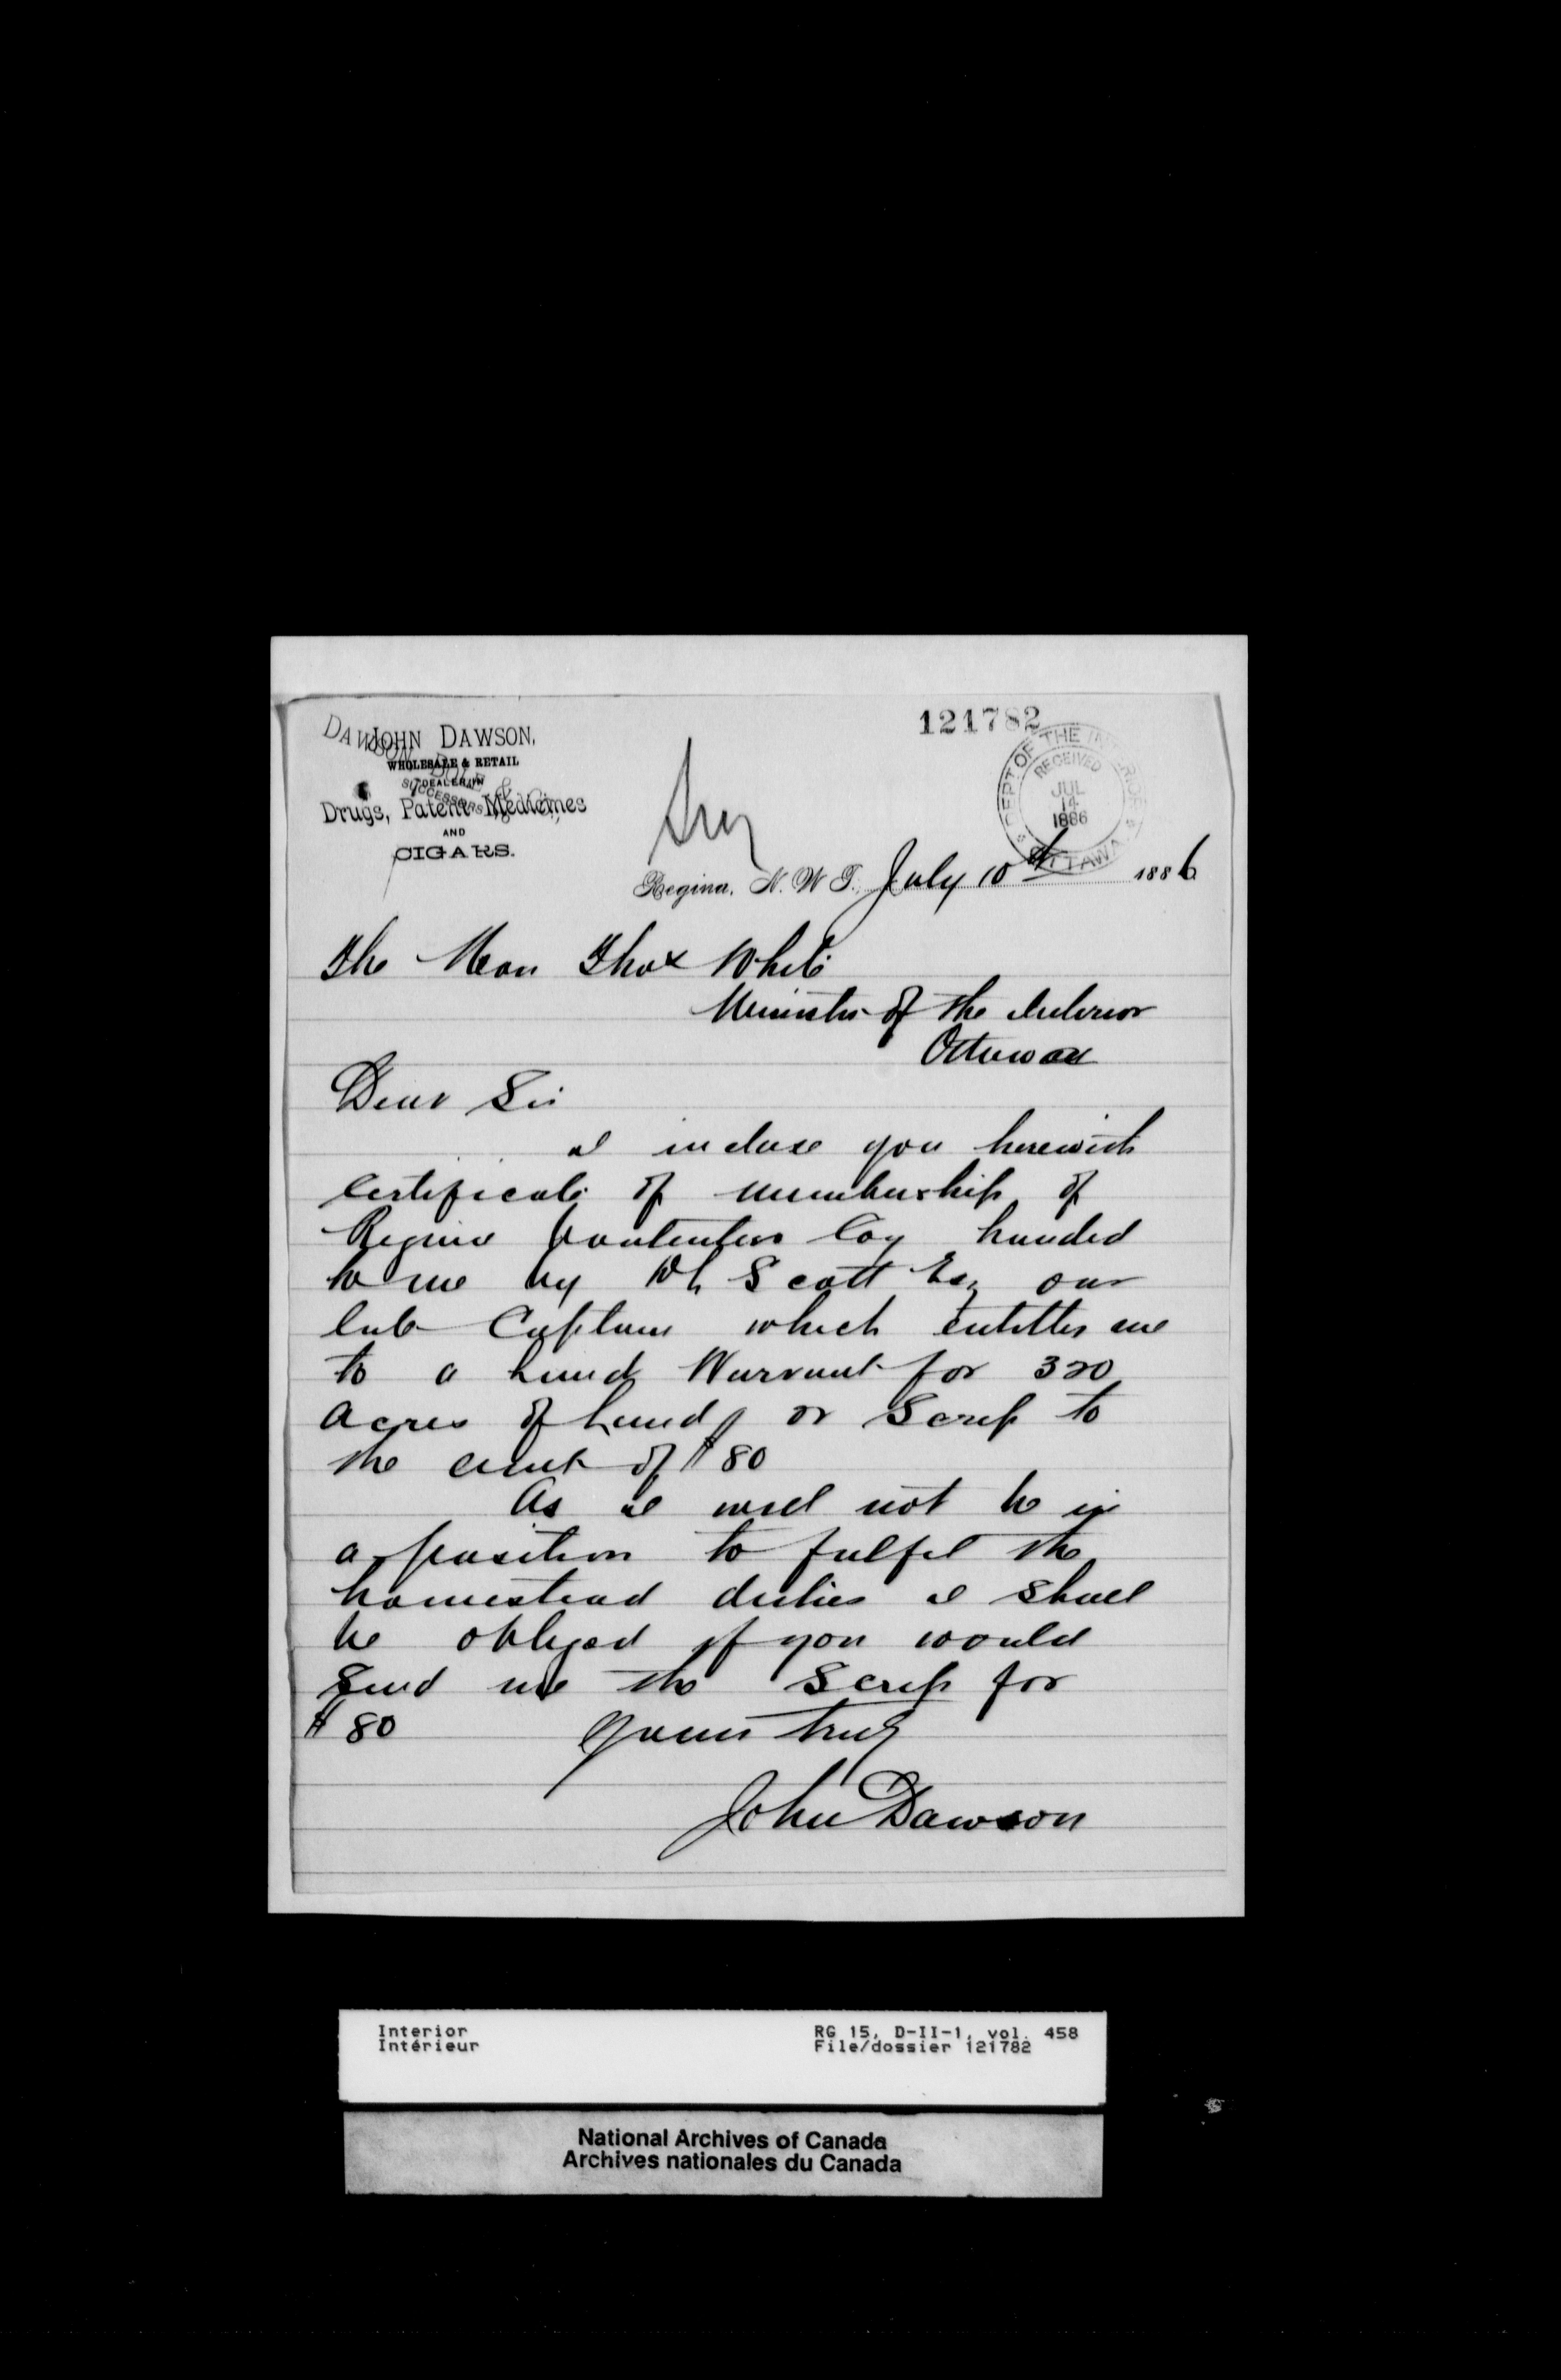 121782
JOHN DAWSON,
WHOLESALE & RETAIL
DEALER IN
Drugs, Patent Medicines
AND
CIGARS.
DAWSON
SUCCESSORS
DEPT. OF THE INTERIOR
RECEIVED
JUL
14
1886
OTTAWA
Regina, N. W. T., July 10th 1886
The Hon Thos White
Minister of the Interior
Ottawa
Dear Sir
I inclose you herewith
Certificate of membership of
Regina Coy handed
to me by Scott Esq our
late Captain which entitles me
to a Land Warrant for 320
acres of Land or Scrip to
the amt of $80
As I will not be in
a position to fulfil the
homestead duties I shall
be obliged if you would
send me the Scrip for
$80 Yours truly
John Dawson
Interior
Intérieur
RG 15, D-II-1, vol. 458
File/dossier 121782
National Archives of Canada
Archives nationales du Canada